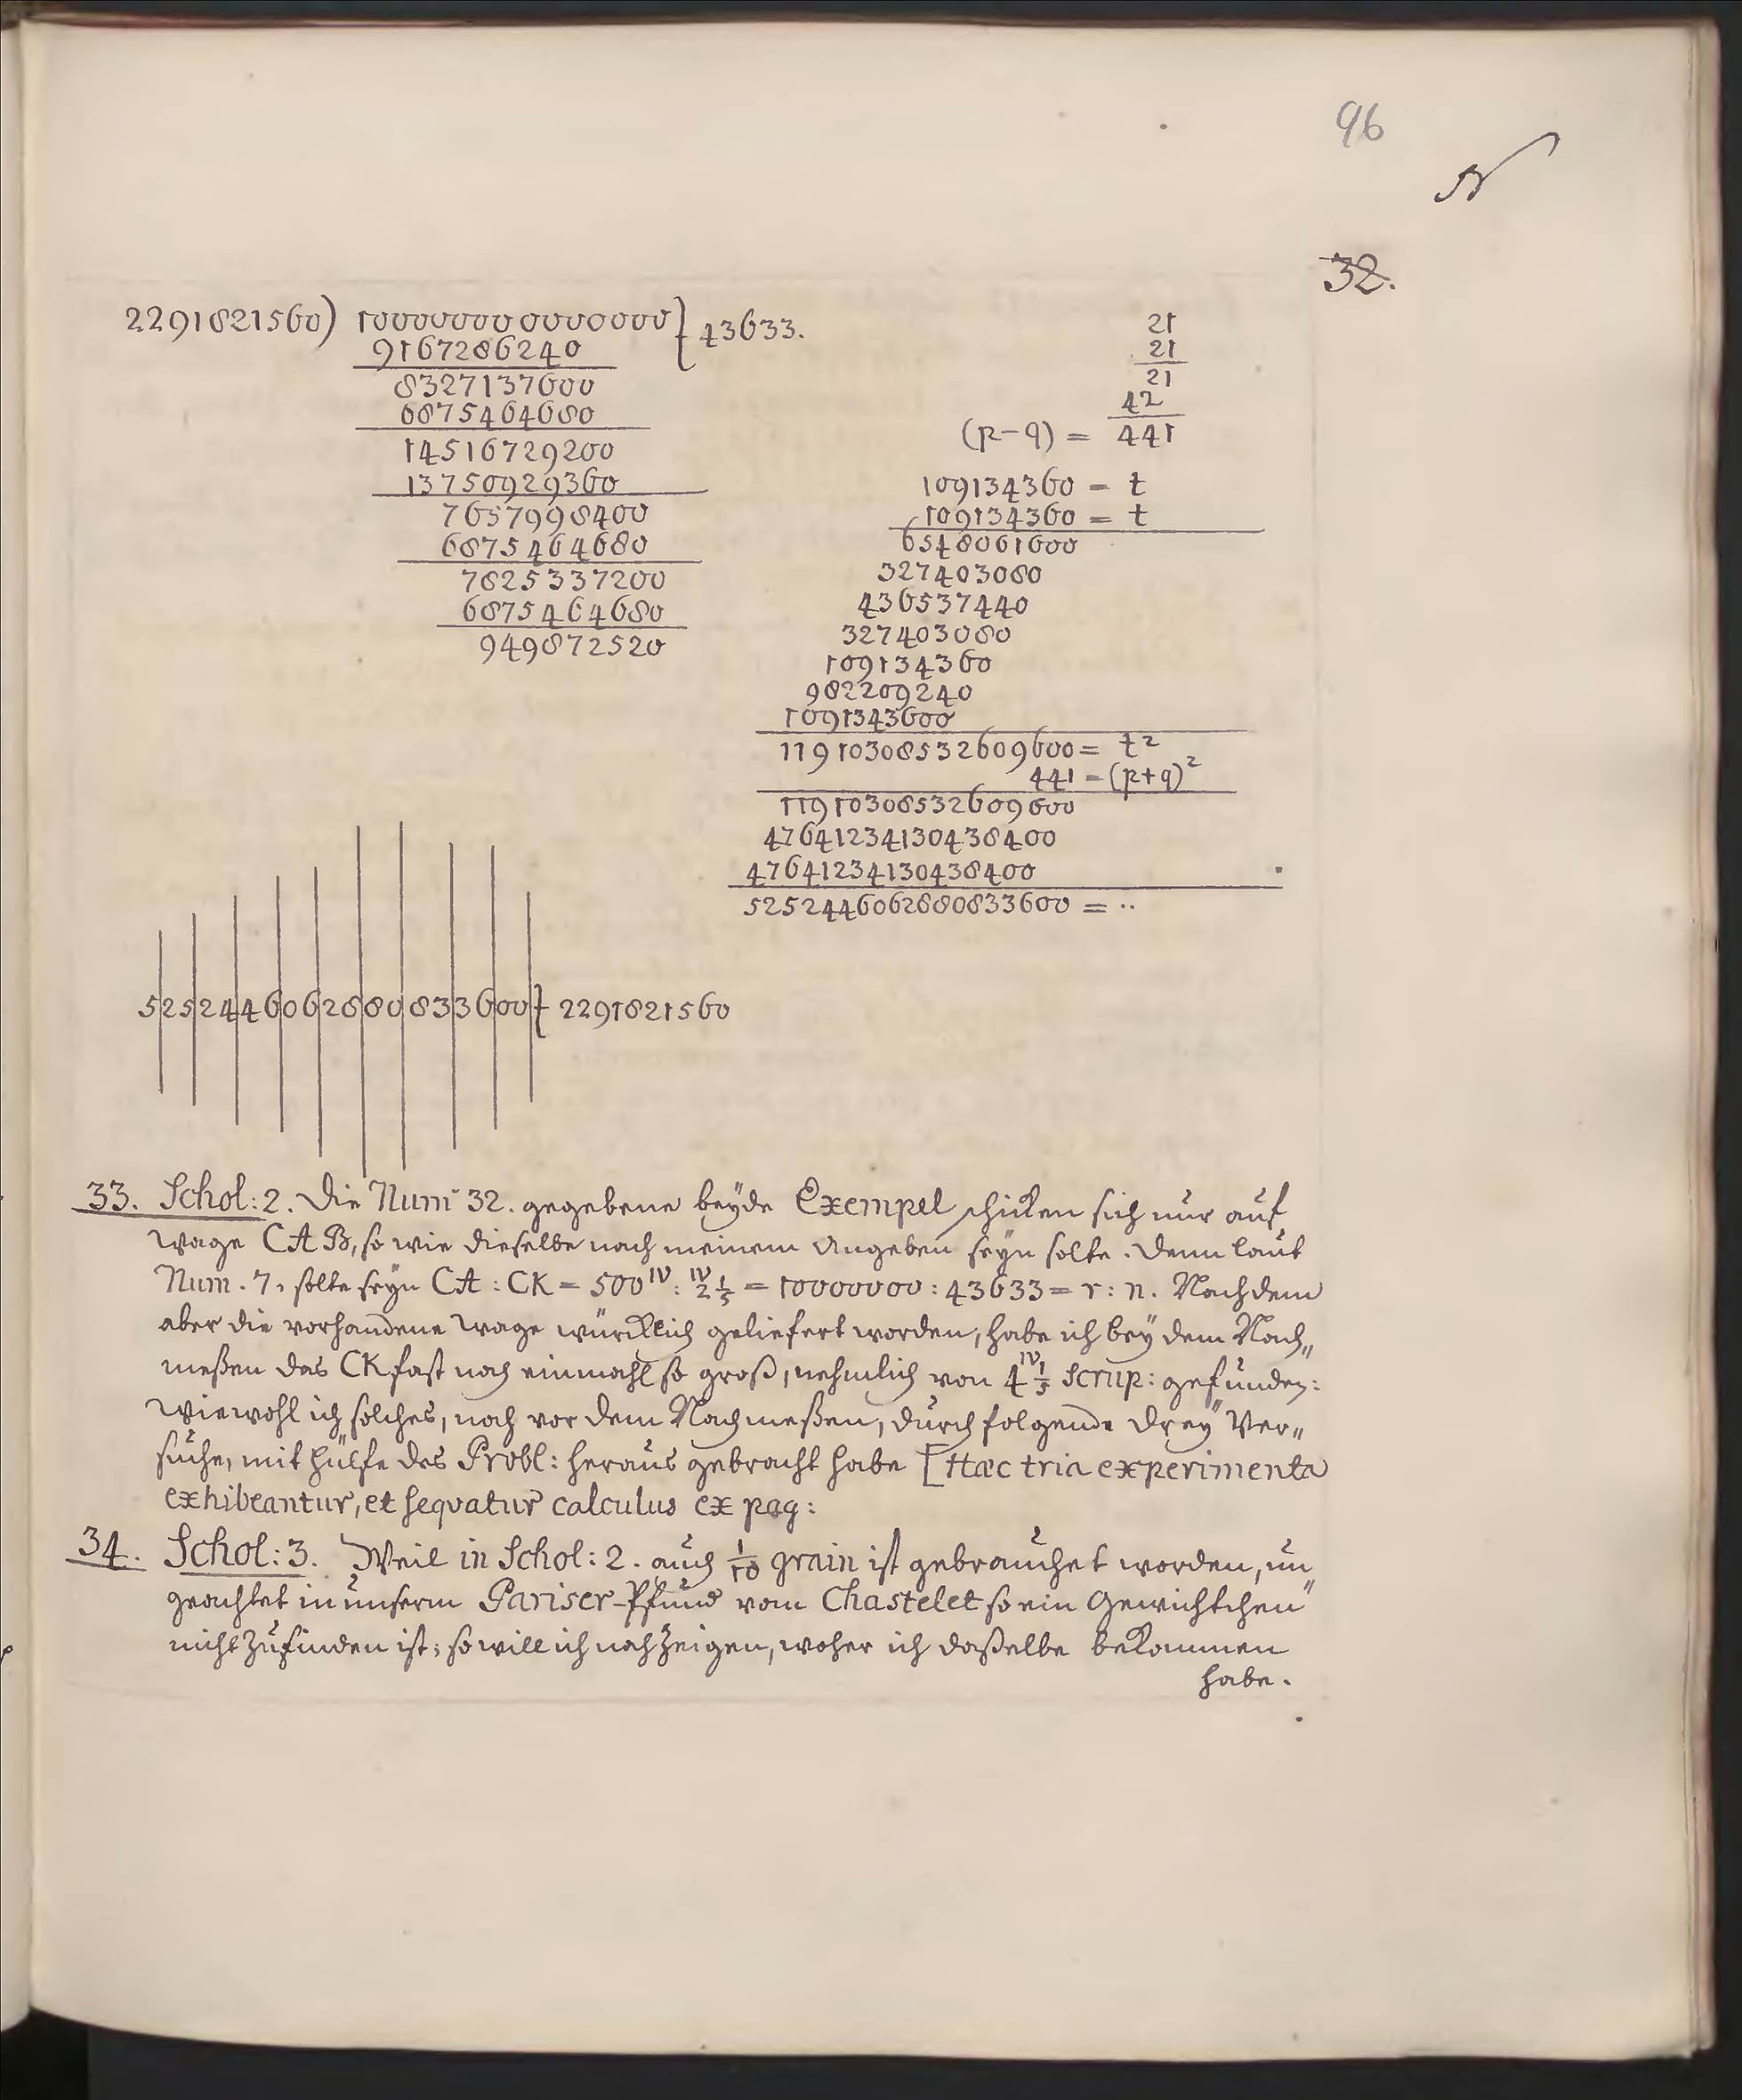 96
N
32.
2291821560) 100000000000000 } 43633.
9167286240
8327137600
6875464680
14516729200
13750929360
7657998400
6875464680
7825337200
6875464680
949872520
21
21
21
42
(p-q) = 441
109134360 = t
109134360 = t
6548061600
327403080
436537440
327403080
109134360
982209240
1091343600
11910308532609600 = t²
441 = (p+q)²
11910308532609600
47641234130438400
47641234130438400
5252446062880833600 = ..
5|25|24|46|06|28|80|83|36|00|} 2291821560
33. Schol: 2. Die Num 32. gegebene beyde Exempel schicken sich nur auf
Wage CAB, so wie dieselbe nach meinem Angeben seyn solte. Denn laut
Num. 7. solte seyn CA : CK = 500^IV : 2^IV 1/5 = 10000000 : 43633 = r : n. Nachdem
aber die vorhandene Wage würcklich geliefert worden, habe ich bey dem Nach„
meßen das CK fast noch einmahl so groß, nehmlich von 4^IV 1/5 Scrup: gefunden:
Wiewohl ich solches, noch vor dem Nachmeßen, durch folgende drey Ver„
suche, mit Hülfe des Probl: heraus gebracht habe [Hæc tria experimenta
exhibeantur, et sequatur calculus ex pag:
34. Schol: 3. Weil in Schol: 2. auch 1/10 grain ist gebrauchet worden, un„
geachtet in unserm Pariser-Pfund vom Chastelet so ein Gewichtchen
nicht zu finden ist; so will ich noch zeigen, woher ich daßelbe bekommen
habe.